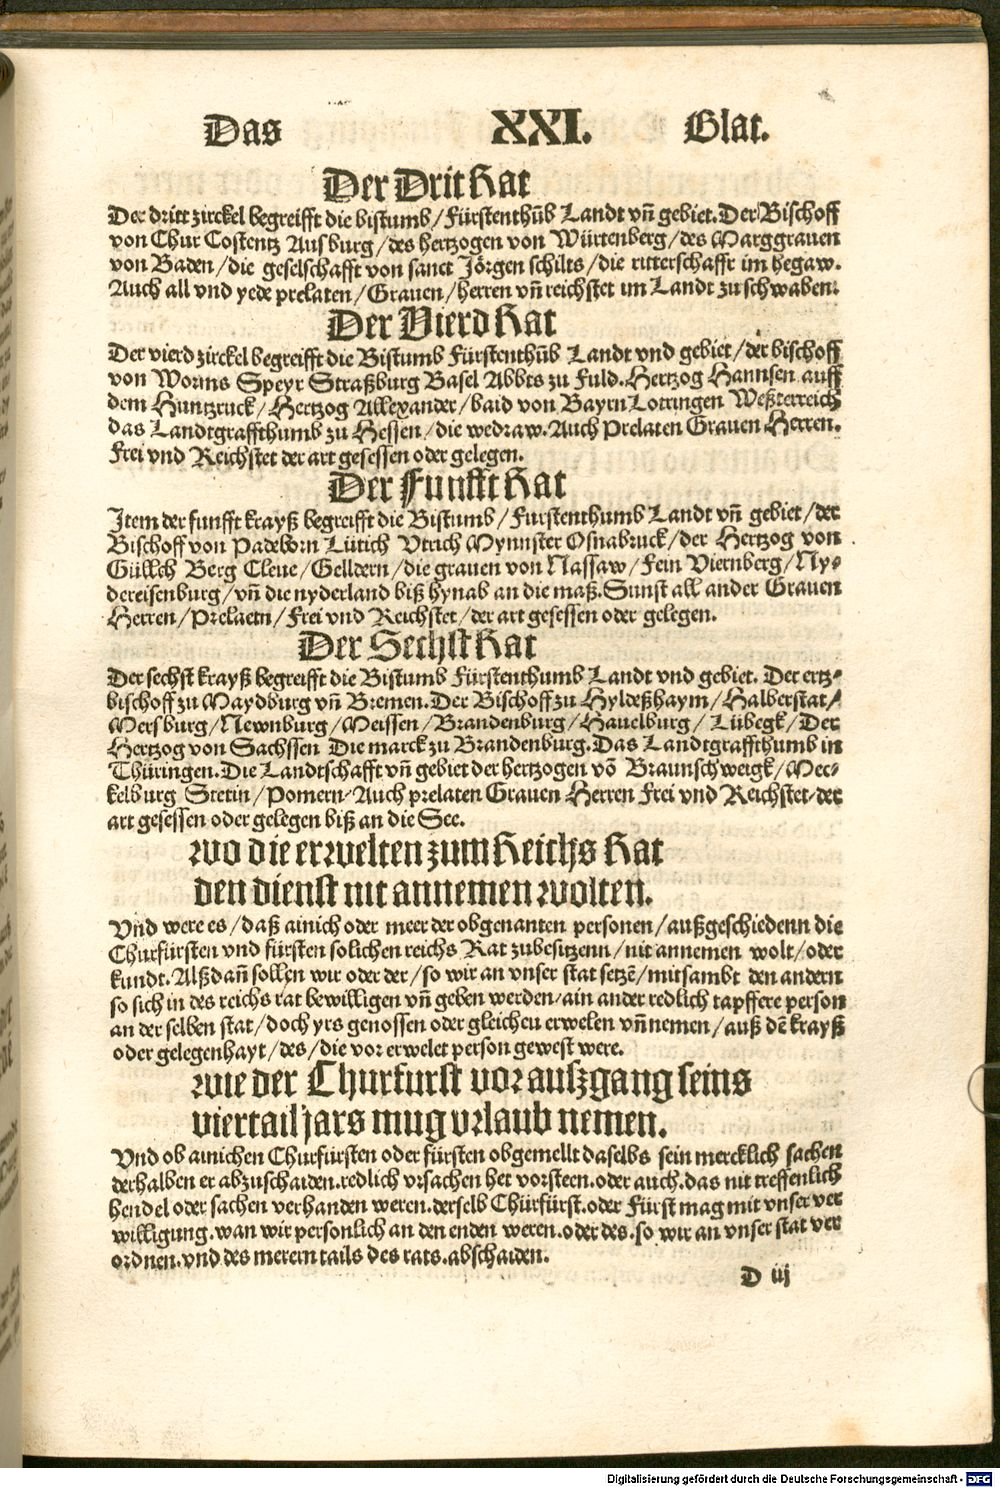 Das XXI. Blat.
Der Drit Rat
Der dritt zirckel begreifft die bistumb/Fürstenthūb Landt vn̄ gebiet. Der Bischoff
von Chur Costentz Ausburg/des hertzogen von Würtenberg/des Marggrauen
von Baden/die geselschafft von sanct Jörgen schilts/die ritterschafft im hegaw.
Auch all vnd yede prelaten/Grauen/herren vn̄ reichstet im Landt zu schwaben.
Der Vierd Rat
Der vierd zirckel begreifft die Bistumb Fürstenthūb Landt vnd gebiet/der bischoff
von Worms Speyr Straßburg Basel Abbts zu Fuld. Hertzog Hannsen auff
dem Huntzruck/Hertzog Allexander/baid von Bayrn Lotringen Weßterreich
das Landtgraffthumb zu Hessen/die wedraw. Auch Prelaten Grauen Herren.
Frei vnd Reichstet der art gesessen oder gelegen.
Der Funfft Rat
Item der funfft krayß begreifft die Bistumb/Furstenthumb Landt vn̄ gebiet/der
Bischoff von Padeborn Lütich Vtrich Mynnster Osnabruck/der Hertzog von
Gülch Berg Cleue/Gelldern/die grauen von Nassaw/Fein Viernberg/Ny-
dereisenburg/vn̄ die nyderland biß hynab an die maß. Sunst all ander Grauen
Herren/Prelaetn/Frei vnd Reichstet/der art gesessen oder gelegen.
Der Sechst Rat
Der sechst krayß begreifft die Bistumb Fürstenthumb Landt vnd gebiet. Der ertz-
bischoff zu Maydburg vn̄ Bremen. Der Bischoff zu Hyldeßhaym/Halberstat/
Mersburg/Newnburg/Meissen/Brandenburg/Hauelburg/Lübegk/Der
Hertzog von Sachssen Die marck zu Brandenburg. Das Landtgraffthumb in
Thüringen. Die Landtschafft vn̄ gebiet der hertzogen vō Braunschweigk/Mec-
kelburg Stetin/Pomern/Auch prelaten Grauen Herren Frei vnd Reichstet/der
art gesessen oder gelegen biß an die See.
Wo die erwelten zum Reichs Rat
den dienst nit annemen wolten.
Vnd were es/daß ainich oder meer der obgenanten personen/außgeschiedenn die
Churfürsten vnd fürsten solichen reichs Rat zubesitzenn/nit annemen wolt/oder
kundt. Alßdan̄ sollen wir oder der/so wir an vnser stat setzē/mitsambt den andern
so sich in des reichs rat bewilligen vn̄ geben werden/ain ander redlich tapffere person
an der selben stat/doch yrs genossen oder gleichen erwelen vn̄ nemen/auß dē krayß
oder gelegenhayt/des/die vor erwelet person gewest were.
Wie der Churfurst vor auszgang seins
viertail jars mug vrlaub nemen.
Vnd ob ainichen Churfürsten oder fürsten obgemellt daselbs sein mercklich sachen
derhalben er abzuschaiden. redlich vrsachen het vorsteen. oder auch. das nit treffenlich
hendel oder sachen verhanden weren. derselb Chürfürst. oder Fürst mag mit vnser ver
willigung. wan wir personlich an den enden weren. oder des. so wir an vnser stat ver
ordnen. vnd des merern tails des rats. abschaiden.
D iij
Digitalisierung gefördert durch die Deutsche Forschungsgemeinschaft - DFG